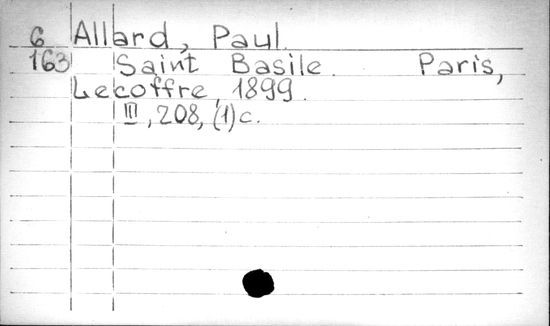 6 Allard, Paul
163 Saint Basile. Paris,
Lecoffre, 1899.
III, 208, (1) c.